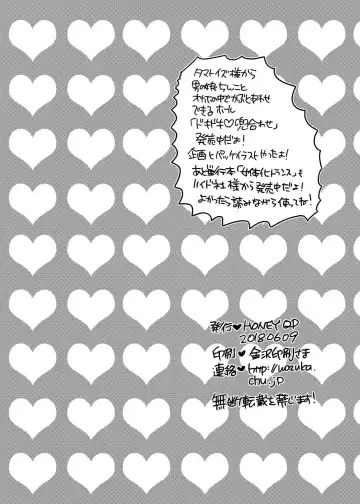 タマトイズ様から
男の娘ちんこと
オナホの中でかぶとあわせ
できるホール
「ドキドキ♡兜合わせ」
発売中だよ!
企画とパッケイラストやったよ!
あと単行本「女体化トランス」も
様から発売中だよ!
よかったら読みながら使ってね!
発行♥HONEY QP
20180609
印刷♥金沢印刷さま
連絡♥http://uozuka.
chu.jp
無断転載を禁じます!